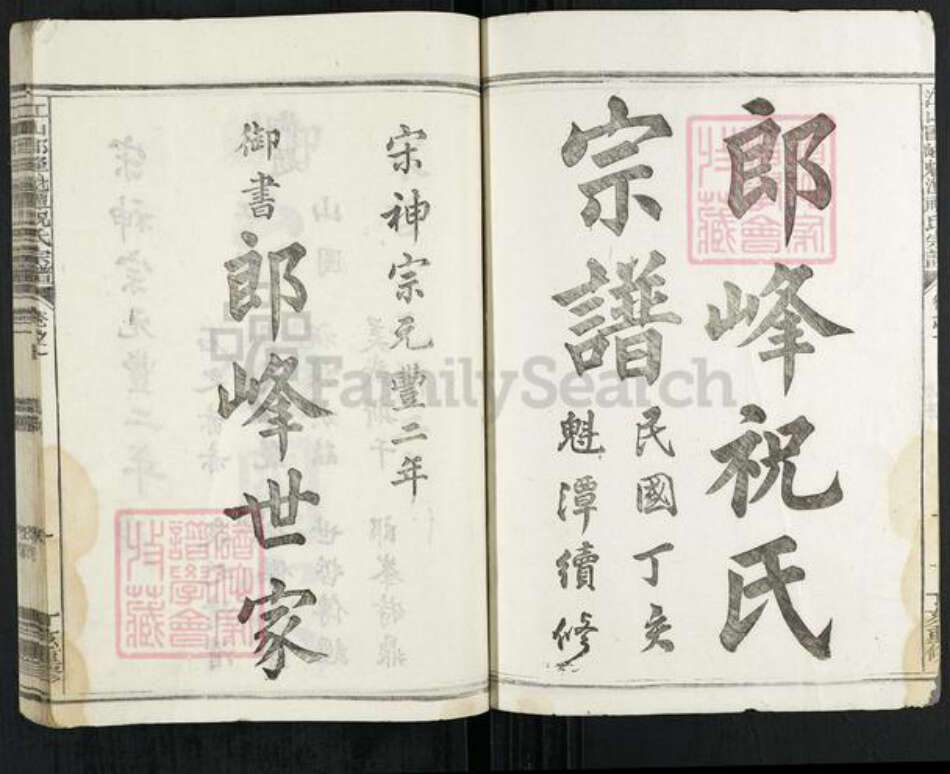 郎峰祝氏
宗譜
民國丁亥
魁潭續修
宋神宗元豐二年
御書
郎峰世家
FamilySearch